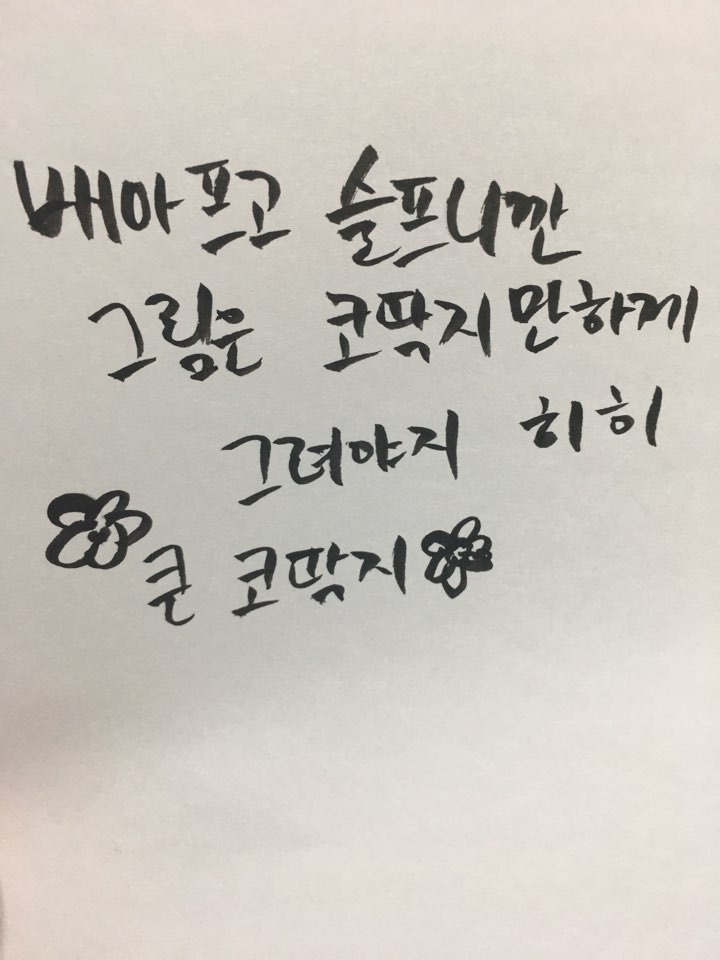 배아프고 슬프니깐
그림은 코딱지만하게
그려야지 히히
큰 코딱지